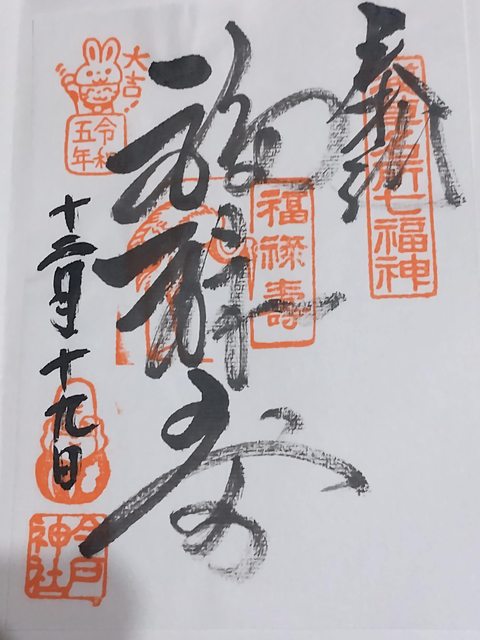 奉拝
七福神
福禄寿
福禄壽
大吉!
令和
五年
十二月十九日
今戸
神社